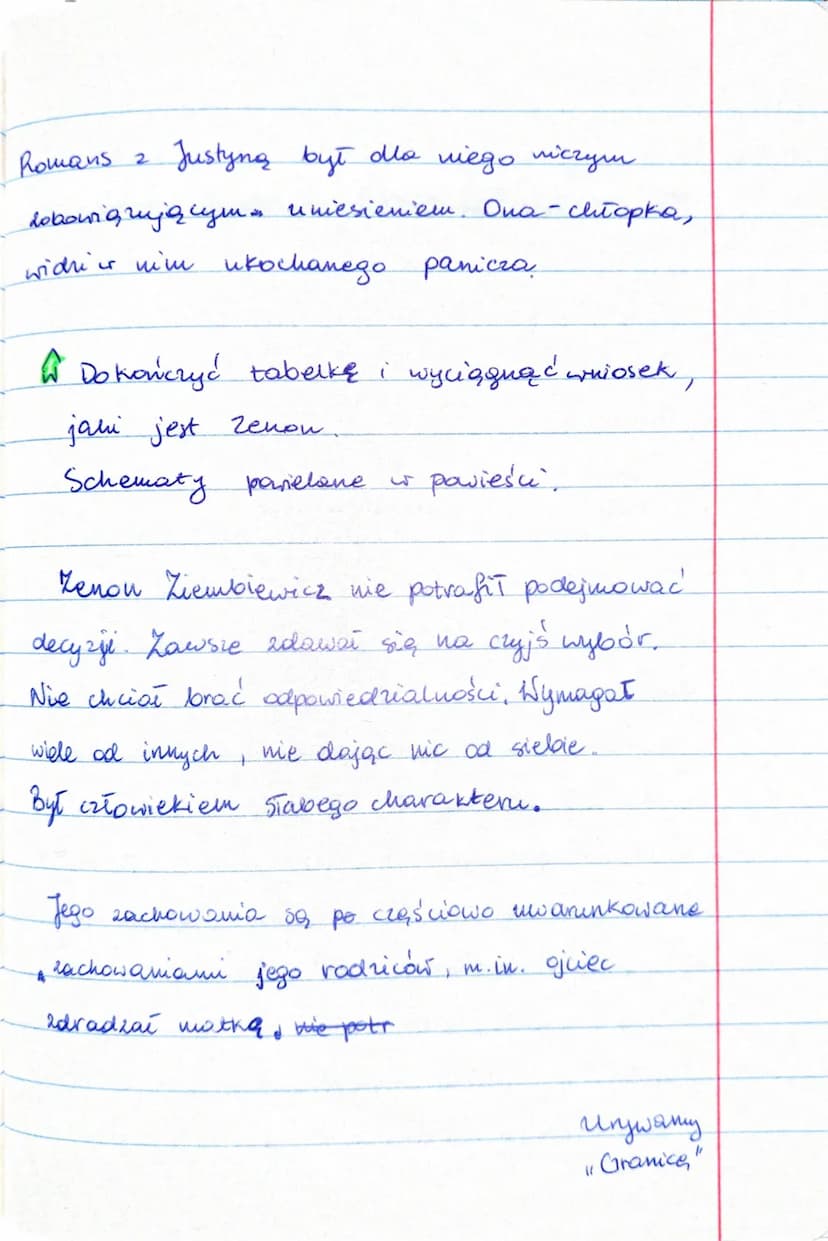 Romans z Justyną był dla niego niczym
zobowiązującym uniesieniem. Ona - chłopka,
widzi w nim ukochanego panicza.
Dokończyć tabelkę i wyciągnąć wniosek,
jaki jest Zenon.
Schematy powielane w powieści.
Zenon Ziembiewicz nie potrafił podejmować
decyzji. Zawsze zdawał się na czyjś wybór.
Nie chciał brać odpowiedzialności. Wymagał
wiele od innych, nie dając nic od siebie.
Był człowiekiem słabego charakteru.
Jego zachowania są po częściowo uwarunkowane
zachowaniami jego rodziców, m.in. ojciec
zdradzał matkę. nie potr
Urywamy
„Granicę"